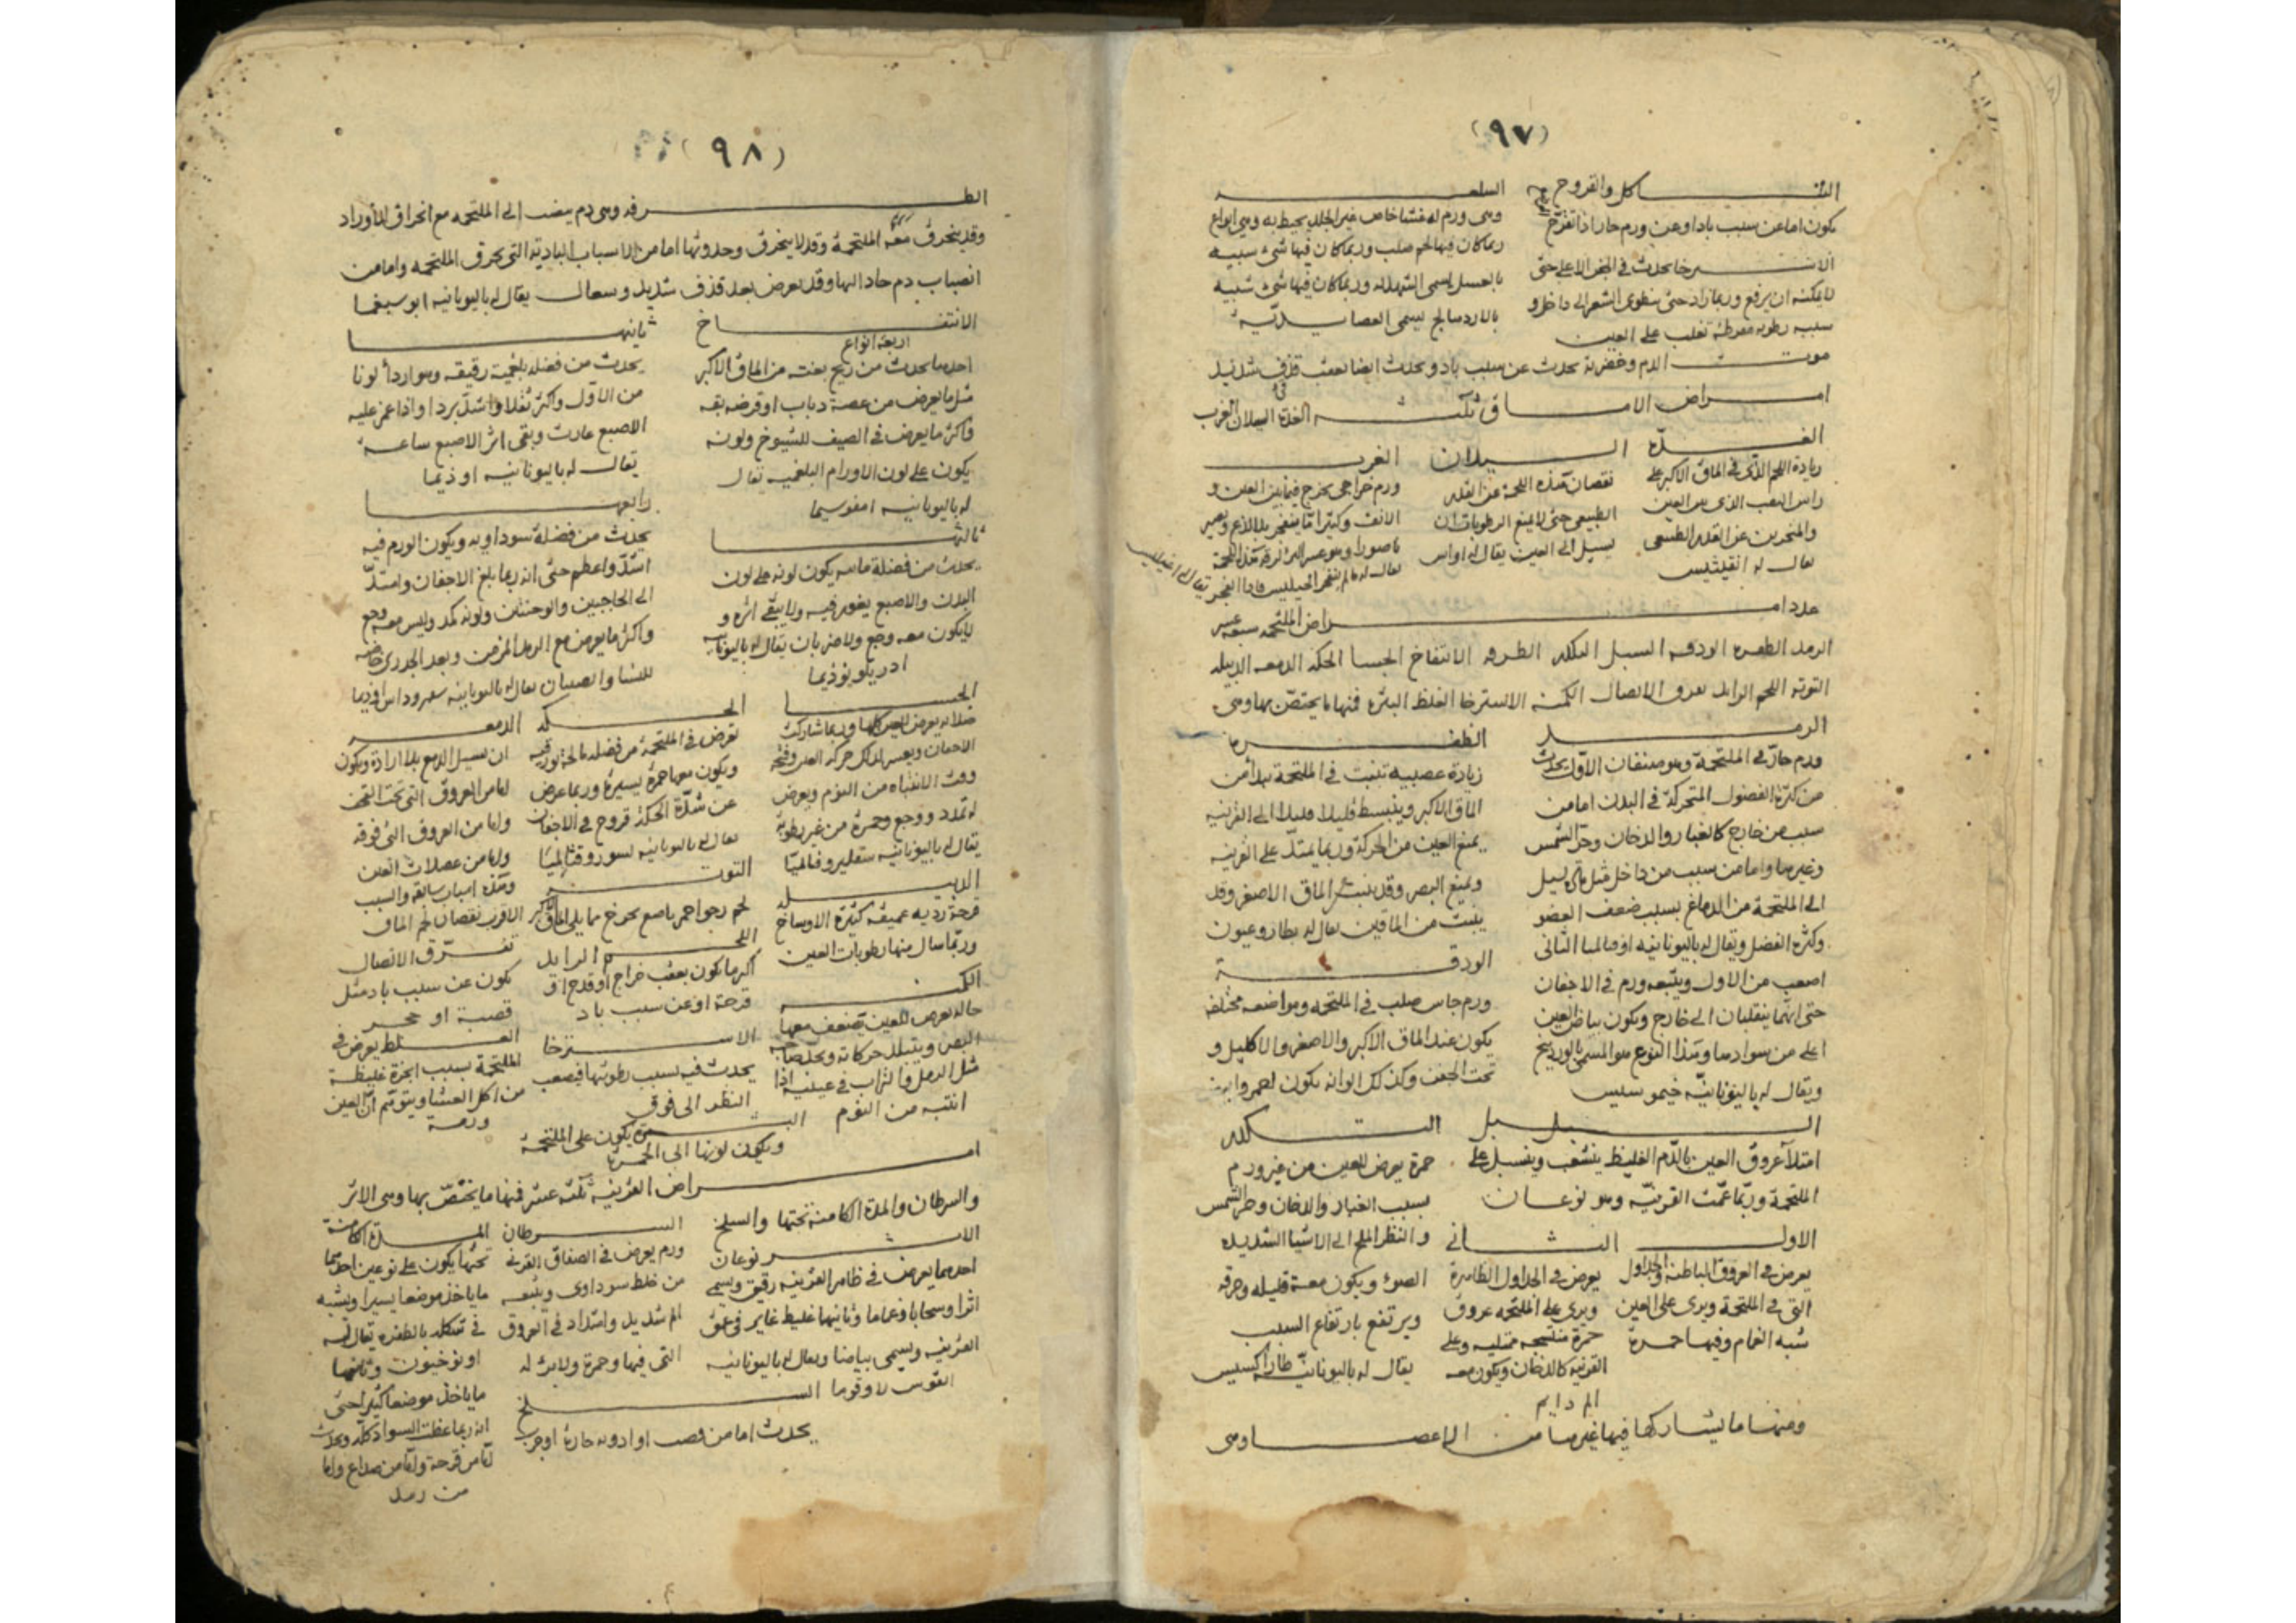 (٩٧)
التـاكل والقروح
يكون اما عن سبب باد او عن ورم حار اذا تقرح
الاسترخا يحدث في الجفن الاعلى حتى
لا يمكنه ان يرفع وربما زاد حتى ينطوى الشعر الى داخل و
سببه رطوبه مفرطة تغلب على العين
السلعـه
وهى ورم له غشا خاص غير الجلد يحيط به وهى انواع
ربما كان فيها لحم صلب وربما كان فيها شئ شبيه
بالعسل يسمى الشهديه وربما كان فيها شئ شبيه
بالاردهالج يسمى العصايديّة
موت الدم وخضرته يحدث عن سبب باد ويحدث ايضا بعقب قذف شديد
امراض الاماق ثلثة الغدة السيلان الغرب
الغدّة
زيادة اللحم الذى في الماق الاكبر على
راس الثقب الذى بين العين
والمنخرين عن القدر الطبيعى
يقال له انقيثيس
السيلان
نقصان هذه اللحمة عن القدر
الطبيعى حتى لا يمنع الرطوبات ان
تسيل الى العين يقال له اواس
الغرب
ورم خراجى يخرج فيما بين العين و
الانف وكثيرا ما ينفجر بلا لذع ويصير
ناصورا وهو عسر البرء لرقة هذه اللحمة
عدد امراض الملتحمه سبعة عشر
الرمد الظفره الودقه السبل التكدر الطرفه الانتفاخ الجسا الحكه الدمعه الدبيله
التوته اللحم الزايد تفرق الاتصال الكمنه الاسترخا الغلظ البثره فمنها ما يختصّ بها وهى
الرمد
ورم حارّ في الملتحمة وهو صنفان الاوّل يحدث
من كثرة الفضول المتحركة في البدن اما من
سبب من خارج كالغبار والدخان وحرّ الشمس
وغيرها واما من سبب من داخل مثل مادة تسيل
الى الملتحمة من الدماغ بسبب ضعف العضو
وكثرة الفضل ويقال له باليونانيه اوفثالميا الثانى
اصعب من الاول ويتبعه ورم في الاجفان
حتى انهما ينقلبان الى خارج ويكون بياض العين
اعلى من سوادها وهذا النوع هو المسمى بالوردينج
ويقال له باليونانيّة خيموسيس
الظفـره
زيادة عصبيه تنبت في الملتحمة يبدأ من
الماق الاكبر وينبسط قليلا قليلا الى القرنيه
يمنع العين من الحركة وربما يمتدّ على القرنيه
ويمنع البصر وقد ينبت من الماق الاصغر وقد
ينبت من الماقين يقال له بطاروغيون
الودقـة
ورم جاس صلب في الملتحمه ومواضعه مختلفه
يكون عند الماق الاكبر والاصغر والاكليل و
تحت الجفن وكذلك الوانه يكون احمر وابيض
السبل
امتلآ عروق العين بالدّم الغليظ ينشعب وينسبل على
الملتحمة وربّما عمّت القرنيّه وهو نوعان
التكدر
حمرة يعرض للعين من غير ورم
بسبب الغبار والدخان وحرّ الشمس
والنظر الملح الى الاشيا الشديده
الضوء ويكون معه قليله وحرقه
ويرتفع بارتفاع السبب
يقال له باليونانيّة طاراكسيس
الاول
يعرض في العروق الباطنه والجداول
التى في الملتحمة ويرى على العين
شبه الغمام وفيها حمرة
الثانى
يعرض في الجداول الظاهرة
ويرى على الملتحمه عروق
حمرة منتسجه ممتليه وعلى
القرنيه كالدخان ويكون معه
الم دايم
ومنها ما يشاركها فيها غيرها من الاعضا وهى
(٩٨)
الطرفه وهى دم ينصب الى الملتحمه مع انخراق الاوراد
وقد ينخرق معه الملتحمة وقد لا ينخرق وحدوثها اما من الاسباب البادية التى يخرق الملتحمه واما من
انصباب دم حاد اليها وقد يعرض بعد قذف شديد وسعال يقال له باليونانيه ابوسبغما
الانتفـاخ
اربعة انواع
احدها يحدث من ريح بغتة من الماق الاكبر
مثل ما يعرض من عضة ذباب او قرصه بقه
واكثر ما يعرض في الصيف للشيوخ ولونه
يكون على لون الاورام البلغميه يقال
له باليونانيه امفوسيما
ثانيها
يحدث من فضله بلغميّة رقيقه وهو اردأ لونا
من الاوّل واكثر ثقلا واشدّ بردا واذا غمز عليه
الاصبع غارت وبقى اثر الاصبع ساعة
يقال له باليونانيه اوذيما
ثالثها
يحدث من فضلة مائيه يكون لونه على لون
البدن والاصبع يغور فيه ولا يبقى اثره و
لا يكون معه وجع ولا ضربان يقال له باليونانيه
ادريلويوذيما
رابعها
يحدث من فضلة سوداويه ويكون الورم فيه
اشدّ واعظم حتى انه ربما بلغ الاجفان وامتدّ
الى الحاجبين والوجنتان ولونه كمد وليس معه وجع
واكثر ما يعرض مع الرمد المزمن وبعد الجدرى خاصه
للنسا والصبيان
الجسـا
صلابه يعرض للعين كلها وربما شاركت
الاجفان ويعسر لذلك حركه العين وفتحه
وقت الانتباه من النوم ويعرض
له تمدد ووجع وحمرة من غير رطوبة
يقال له باليونانيه سقليروفثالميّا
الحكه
تعرض في الملتحمة من فضله مالحة بورقيه
ويكون معها حمرة يسيرة وربما عرض
عن شدّة الحكة قروح في الاجفان
الدمعـه
ان يسيل الدمع بلا ارادة ويكون
اما من العروق التى تحت القحف
واما من العروق التى فوقه
واما من عضلات العين
وهذه اسباب سابقه والسبب
الاقرب نقصان لحم الماق
التوتـه
لحم رخو احمر ناصع يخرج مما يلى الماق الاكبر
الدبيلـه
قرحة رديه عميقه كثيرة الاوساخ
وربّما سال منها رطوبات العين
اللحم الزايد
اكثر ما يكون بعقب خراج او قدح او
قرحة او عن سبب باد
تفرّق الاتصال
يكون عن سبب باد مثل
قصبة او حجر
الكمنـه
حاله يعرض للعين يضعف معها
البصر ويتبلد حركاته ويجد صاحبه
مثل الرمل والتراب في عينيه اذا
انتبه من النوم
الاسترخا
يحدث فيه بسبب رطوبتها فيصعب
النظر الى فوق
الغلظ يعرض في
الملتحمة بسبب ابخرة غليظة
من اكل العشا ويتوهّم ان العين
ورمة
البثـرة يكون على الملتحمة
ويكون لونها الى الحمرة
امراض القرنيه ثلثه عشر فمنها ما يختصّ بها وهى الاثر
والسرطان والمدة الكامنة تحتها والسلخ
الاثـر نوعان
احدهما يعرض في ظاهر القرنيه رقيق ويسمى
اثرا وسحابا وغماما وثانيها غليظ غاير في عمق
القرنيه ويسمى بياضا ويقال له باليونانيه
القوس لاوقوما
السرطان
ورم يعرض في الصفاق القرنى
من خلط سوداوى ويتبعه
الم شديد وامتداد في العروق
التى فيها وحمرة ولا برء له
المدة الكامنة
تحتها يكون على نوعين احدهما
ما ياخذ موضعا يسيرا ويشبه
في شكله بالظفره يقال له
اونوخيون وثانيهما
ما ياخذ موضعا كثيرا حتى
انه ربما غطت السواد كله ويحدث
امّا من قرحة وامّا من صداع واما
من رمد
السلخ
يحدث اما من قصب او ادويه حارة او جرب